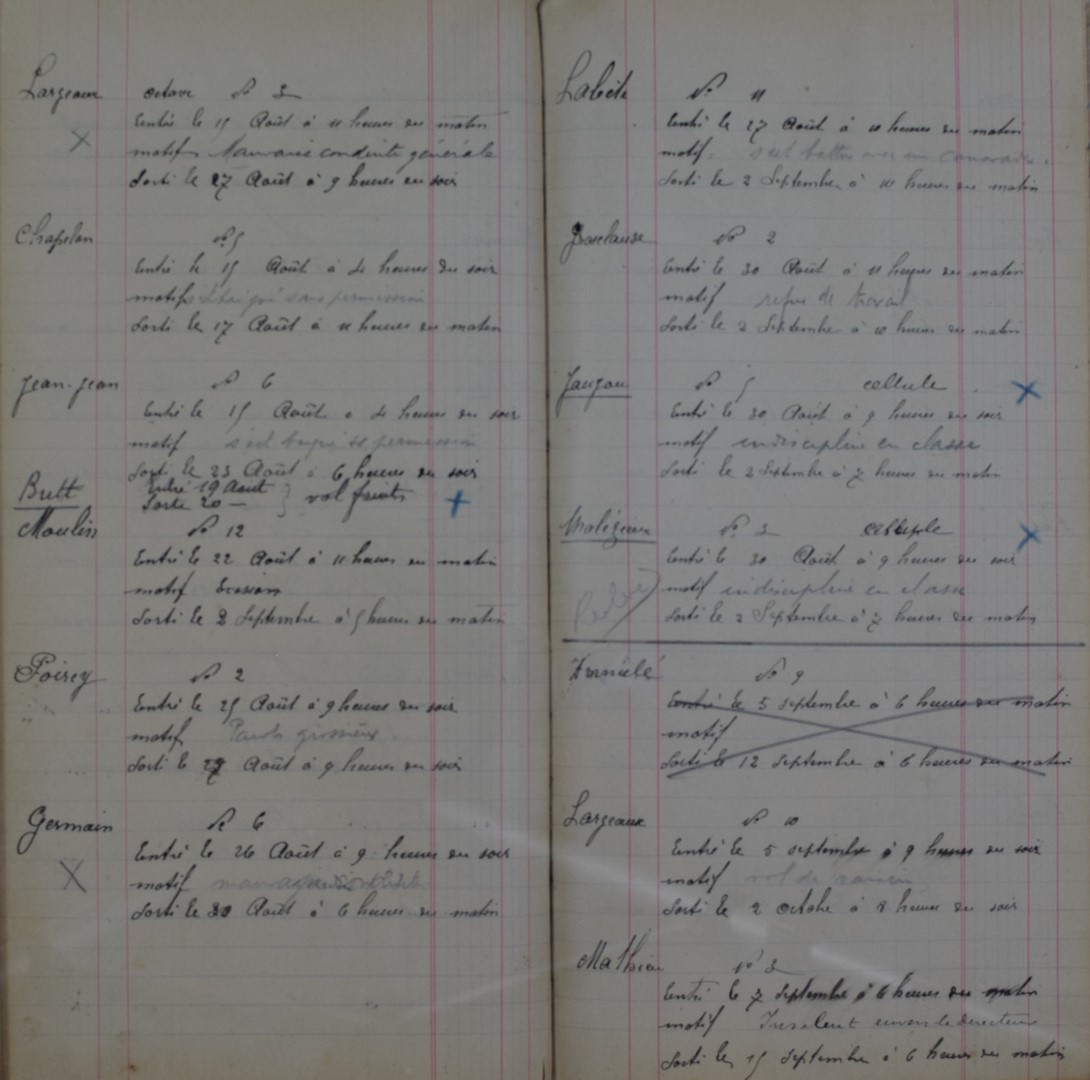 Largeaux octave No 3
Entrée le 15 Août à 11 heures du matin
motifs Mauvaise conduite générale
Sorti le 27 Août à 9 heures du soir
Chapelon No 5
Entré le 15 Août à 4 heures du soir
motifs baigné sans permission
Sorti le 17 Août à 11 heures du matin
Jean-Jean No 6
Entré le 15 Août à 4 heures du soir
motif s'est baigné ss permission
Sorti le 23 Août à 6 heures du soir
Butt Entré 19 Aout } vol fruits
Sortie 20 —
Moulin No 12
Entré le 22 Août à 11 heures du matin
motif Evasion
Sorti le 2 Septembre à 5 heures du matin
Poirey No 2
Entré le 25 Août à 9 heures du soir
motif Parole grossière
Sorti le 29 Août à 9 heures du soir
Germain No 6
Entré le 26 Août à 9 heures du soir
motif mauvaise conduite
Sorti le 30 Août à 6 heures du matin
Labête No 11
Entré le 27 Août à 10 heures du matin
motif. s'est battu avec un camarade.
Sorti le 2 Septembre à 10 heures du matin
No 2
Entré le 30 Août à 11 heures du matin
motif refus de travail
Sorti le 2 Septembre à 10 heures du matin
Jauzou No 5 cellule
Entré le 30 Août à 9 heures du soir
motif indiscipline en classe
Sorti le 2 Septembre à 7 heures du matin
Malézieux No 3 cellule
Entré le 30 Août à 9 heures du soir
motif indiscipline en classe
Sorti le 2 Septembre à 7 heures du matin
No 9
Entré le 5 septembre à 6 heures du matin
motif
Sorti le 12 septembre à 6 heures du matin
Largeaux No 10
Entré le 5 septembre à 9 heures du soir
motif vol de raisin
Sorti le 2 octobre à 8 heures du soir
Mathieu No 3
Entré le 7 septembre à 6 heures du matin
motif Insolent envers le directeur
Sorti le 15 septembre à 6 heures du matin